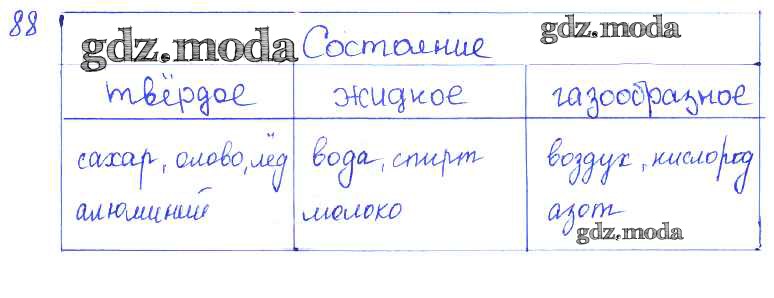 88
gdz.moda Состояние gdz.moda
твёрдое жидкое газообразное
сахар, олово, лёд вода, спирт воздух, кислород
алюминий молоко азот
gdz.moda